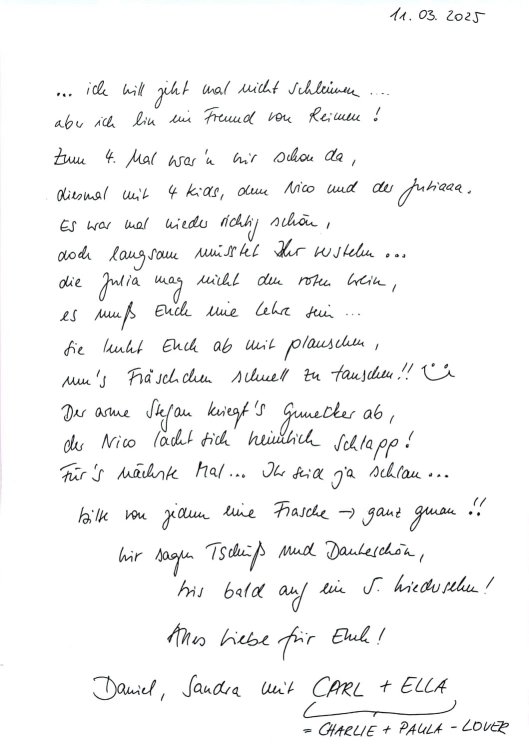 11. 03. 2025
... ich will jetzt mal nicht schleimen ....
aber ich bin ein Freund von Reimen!
Zum 4. Mal war'n wir schon da,
diesmal mit 4 Kids, dem Nico und der Juliaaa.
Es war mal wieder richtig schön,
doch langsam müsstet Ihr verstehn ...
die Julia mag nicht den roten Wein,
es muß Euch eine Lehre sein ...
Sie lenkt Euch ab mit plauschen,
um's Fläschchen schnell zu tauschen!!
Der arme Stefan kriegt's Gemecker ab,
der Nico lacht sich heimlich schlapp!
Für's nächste Mal ... Ihr seid ja schlau ...
bitte von jedem eine Flasche → ganz genau!!
Wir sagen Tschüß und Dankeschön,
bis bald auf ein 5. Wiedersehn!
Alles Liebe für Euch!
Daniel, Sandra mit CARL + ELLA
= CHARLIE + PAULA - LOVER